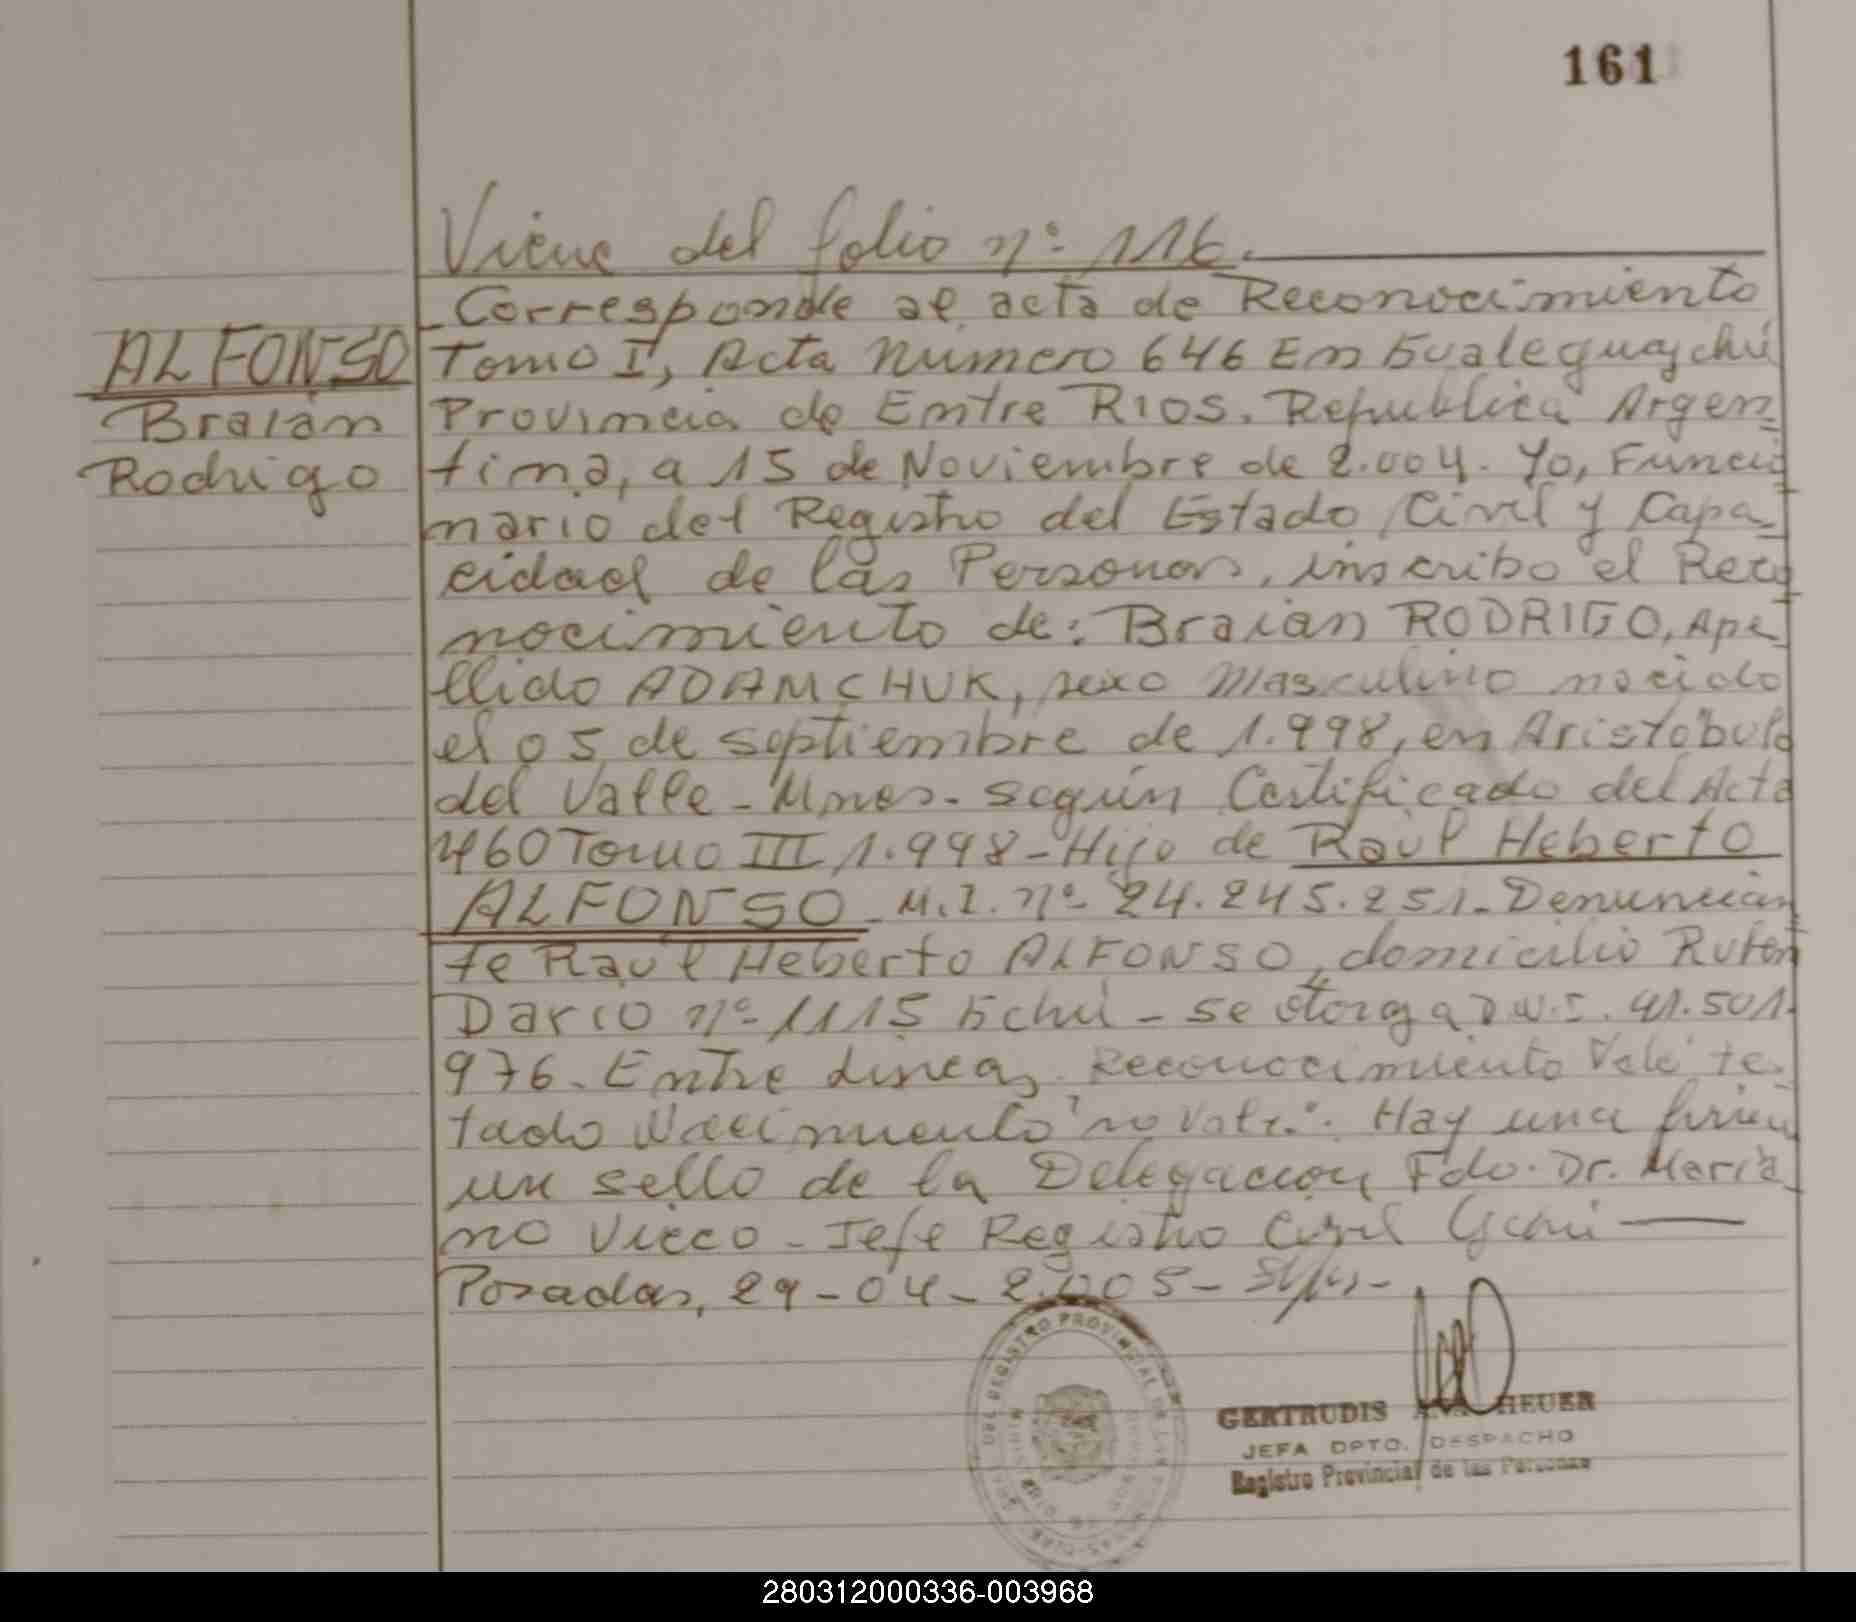 161
Viene del folio nº 116.
Corresponde al acta de Reconocimiento
ALFONSO
Tomo I, Acta Numero 646 En Gualeguaychú
Braian
Provincia de Entre RIOS. Republica Argen-
Rodrigo
tina, a 15 de Noviembre de 2.004. Yo, Funcio
nario del Registro del Estado Civil y Capa-
cidad de las Personas, inscribo el Reco
nocimiento de: Braian RODRIGO, Ape-
llido ADAMCHUK, sexo Masculino nacido
el 05 de septiembre de 1.998, en Aristobulo
del Valle - Mnes. según Certificado del Acta
460 Tomo III 1.998 - Hijo de Raúl Heberto
ALFONSO - M.I. nº 24.245.251. Denuncian
te Raúl Heberto ALFONSO, domicilio Ruben
Dario nº 1115 Gchú - se otorga D.N.I. 41.501.
976. Entre Lineas Reconocimiento Vale tes-
tado Nacimiento "no Vale". Hay una firma
un sello de la Delegacion Fdo. Dr. Maria
no Vicco - Jefe Registro Civil Gchú
Posadas, 29-04-2.005-
DEL REGISTRO PROVINCIAL DE LAS
GERTRUDIS ANA HEUER
JEFA DPTO. DESPACHO
Registro Provincial de las Personas
280312000336-003968